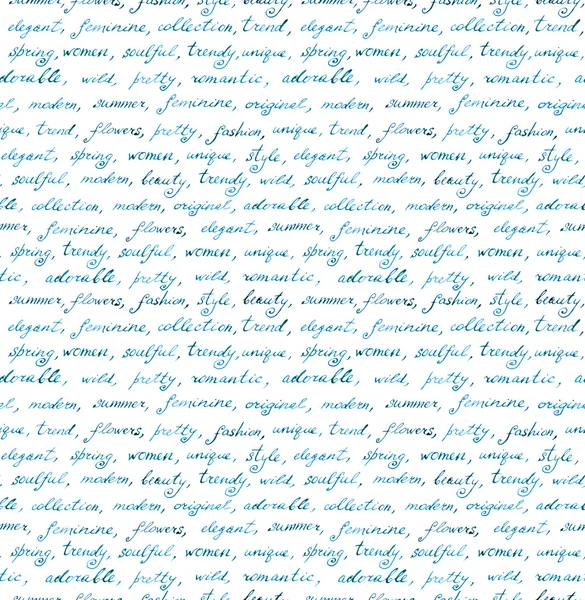 summer, flowers, fashion, style, beauty, summer, flowers, fashion, style, beauty,
elegant, feminine, collection, trend, elegant, feminine, collection, trend,
spring, women, soulful, trendy, unique, spring, women, soulful, trendy, unique,
dorable, wild, pretty, romantic, adorable, wild, pretty, romantic, a
el, modern, summer, feminine, original, modern, summer, feminine, origin
ique, trend, flowers, pretty, fashion, unique, trend, flowers, pretty, fashion, un
elegant, spring, women, unique, style, elegant, spring, women, unique, style,
, soulful, modern, beauty, trendy, wild, soulful, modern, beauty, trendy, wild,
ble, collection, modern, original, adorable, collection, modern, original, adora
mmer, feminine, flowers, elegant, summer, feminine, flowers, elegant, sum
spring, trendy, soulful, women, unique, spring, trendy, soulful, women, unique,
tic, adorable, pretty, wild, romantic, adorable, pretty, wild, roman
summer, flowers, fashion, style, beauty, summer, flowers, fashion, style, beauty,
elegant, feminine, collection, trend, elegant, feminine, collection, trend,
spring, women, soulful, trendy, unique, spring, women, soulful, trendy, unique,
dorable, wild, pretty, romantic, adorable, wild, pretty, romantic, a
el, modern, summer, feminine, original, modern, summer, feminine, origin
ique, trend, flowers, pretty, fashion, unique, trend, flowers, pretty, fashion, un
elegant, spring, women, unique, style, elegant, spring, women, unique, style,
, soulful, modern, beauty, trendy, wild, soulful, modern, beauty, trendy, wild,
ble, collection, modern, original, adorable, collection, modern, original, adora
mmer, feminine, flowers, elegant, summer, feminine, flowers, elegant, sum
spring, trendy, soulful, women, unique, spring, trendy, soulful, women, unique,
tic, adorable, pretty, wild, romantic, adorable, pretty, wild, roman
summer, flowers, fashion, style, beauty, summer, flowers, fashion, style, beauty